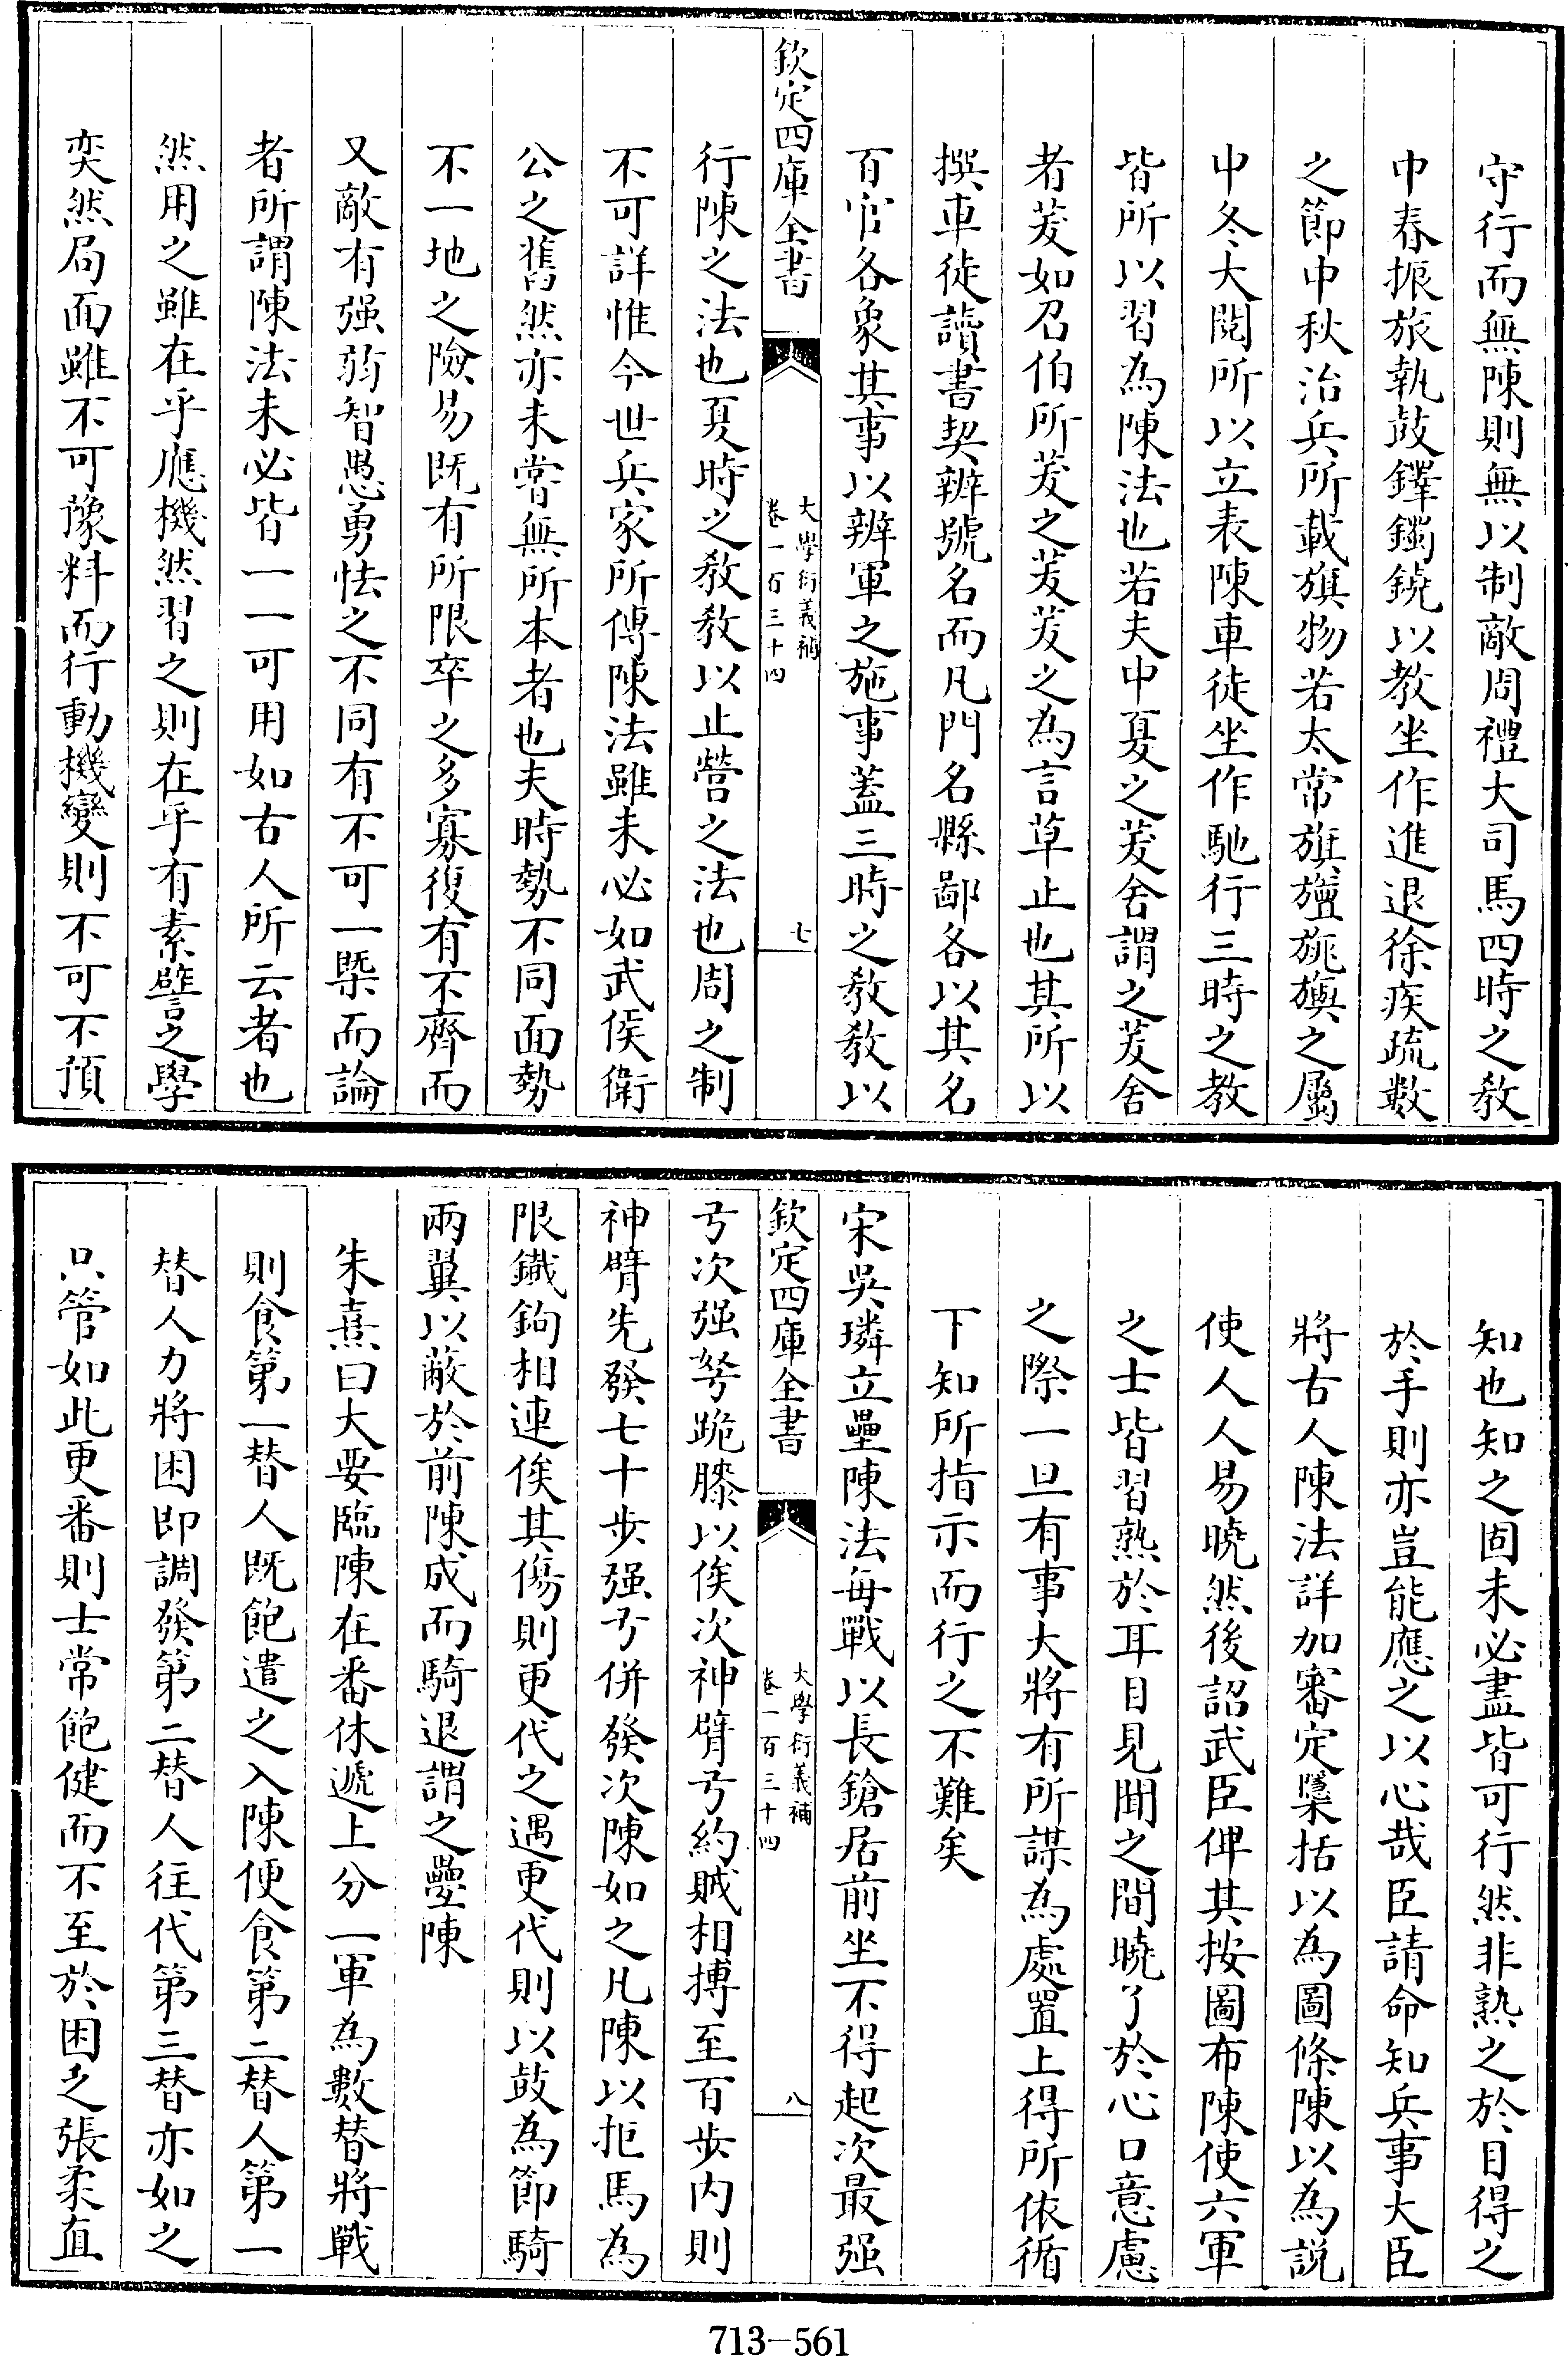 守行而無陳則無以制敵周禮大司馬四時之教
中春振旅執鼓鐸鐲鐃以教坐作進退徐疾疏數
之節中秋治兵所載旗物若太常旗旜旐旟之屬
中冬大閱所以立表陳車徒坐作馳行三時之教
皆所以習為陳法也若夫中夏之茇舍謂之茇舍
者茇如召伯所茇之茇茇之為言草止也其所以
撰車徒讀書契辨號名而凡門名縣鄙各以其名
百官各象其事以辨軍之施事蓋三時之教教以
欽定四庫全書
大學衍義補
卷一百三十四
七
行陳之法也夏時之教教以止營之法也周之制
不可詳惟今世兵家所傳陳法雖未必如武侯衛
公之舊然亦未嘗無所本者也夫時勢不同面勢
不一地之險易既有所限卒之多寡復有不齊而
又敵有强弱智愚勇怯之不同有不可一槩而論
者所謂陳法未必皆一一可用如古人所云者也
然用之雖在乎應機然習之則在乎有素譬之學
奕然局面雖不可豫料而行動機變則不可不預
知也知之固未必盡皆可行然非熟之於目得之
於手則亦豈能應之以心哉臣請命知兵事大臣
將古人陳法詳加審定櫽括以為圖條陳以為說
使人人易曉然後詔武臣俾其按圖布陳使六軍
之士皆習熟於耳目見聞之間曉了於心口意慮
之際一旦有事大將有所謀為處置上得所依循
下知所指示而行之不難矣
宋吳璘立壘陳法每戰以長鎗居前坐不得起次最强
欽定四庫全書
大學衍義補
卷一百三十四
八
弓次强弩跪膝以俟次神臂弓約賊相搏至百步内則
神臂先發七十步强弓併發次陳如之凡陳以拒馬為
限鐵鉤相連俟其傷則更代之遇更代則以鼓為節騎
兩翼以蔽於前陳成而騎退謂之疊陳
朱熹曰大要臨陳在番休遞上分一軍為數替將戰
則食第一替人既飽遣之入陳便食第二替人第一
替人力將困即調發第二替人往代第三替亦如之
只管如此更番則士常飽健而不至於困乏張柔直
713-561